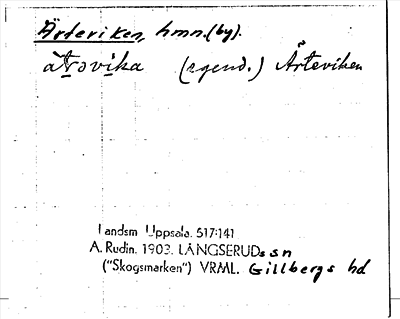 Ärteriken, hmn. (by).
àtrovika (egend.) Ärteviken
Landsm Uppsala. 517:141
A. Rudin. 1903. LÅNGSERUDs sn
("Skogsmarken") VRML. Gillbergs hd